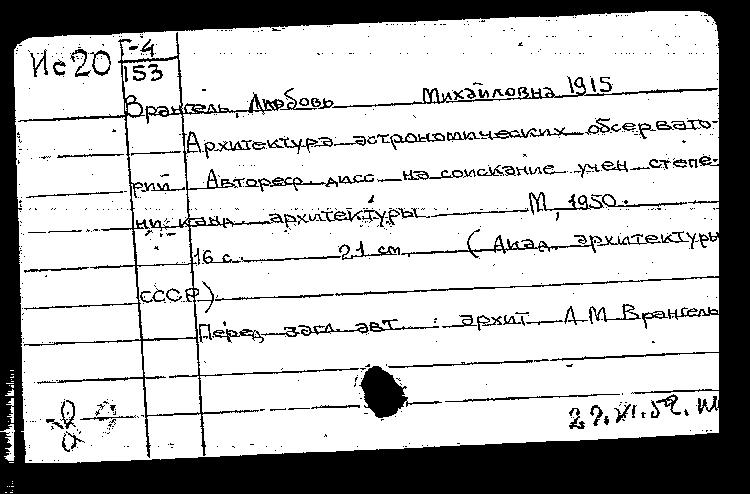 Ис20 Г-4
153
Врангель, Любовь Михайловна 1915
Архитектура астрономических обсервато-
рий. Автореф. дисс. на соискание учен степе-
ни канд. архитектуры М, 1950.
16 с. 21 cm. (Акад. архитектуры
СССР)
Перед загл. авт. : архит. Л М Врангель